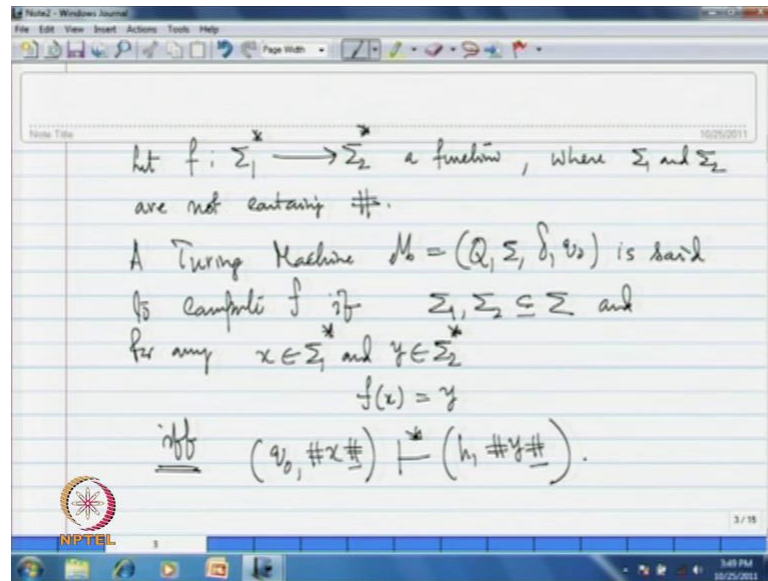 Note2 - Windows Journal
File Edit View Insert Actions Tools Help
Page Width
Note Title
10/25/2011
Let f : Σ₁* → Σ₂* a function, where Σ₁ and Σ₂
are not containing #.
A Turing Machine M = (Q, Σ, δ, q₀) is said
to compute f if Σ₁, Σ₂ ⊆ Σ and
for any x ∈ Σ₁* and y ∈ Σ₂*
f(x) = y
iff (q₀, #x#̲) ⊢* (h, #y#̲).
3/15
NPTEL
3
3:49 PM
10/25/2011